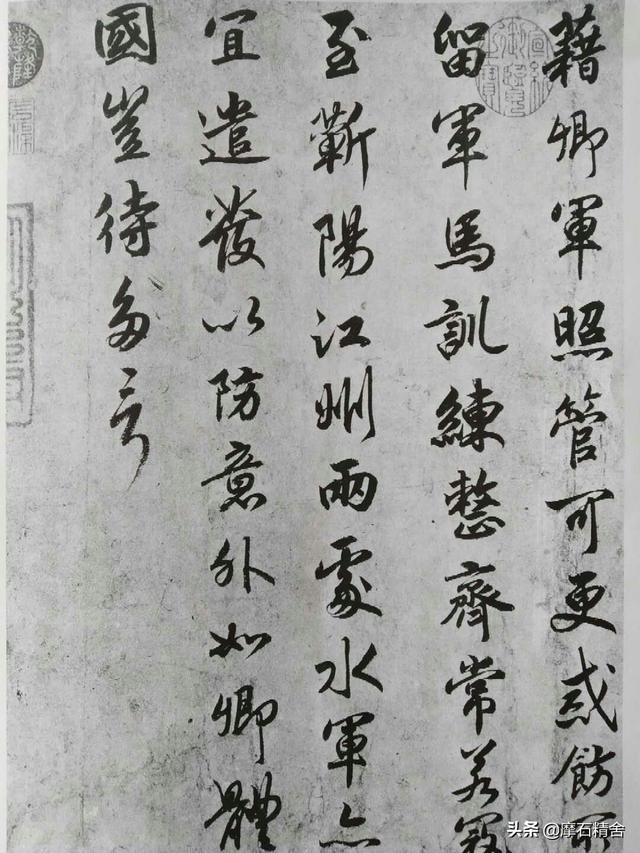 藉卿軍照管可更戒飭所
留軍馬訓練整齊常若寇
至蘄陽江州兩處水軍亦
宜遣發以防意外如卿體
國豈待多言
乾隆
头条 @摩石精舍